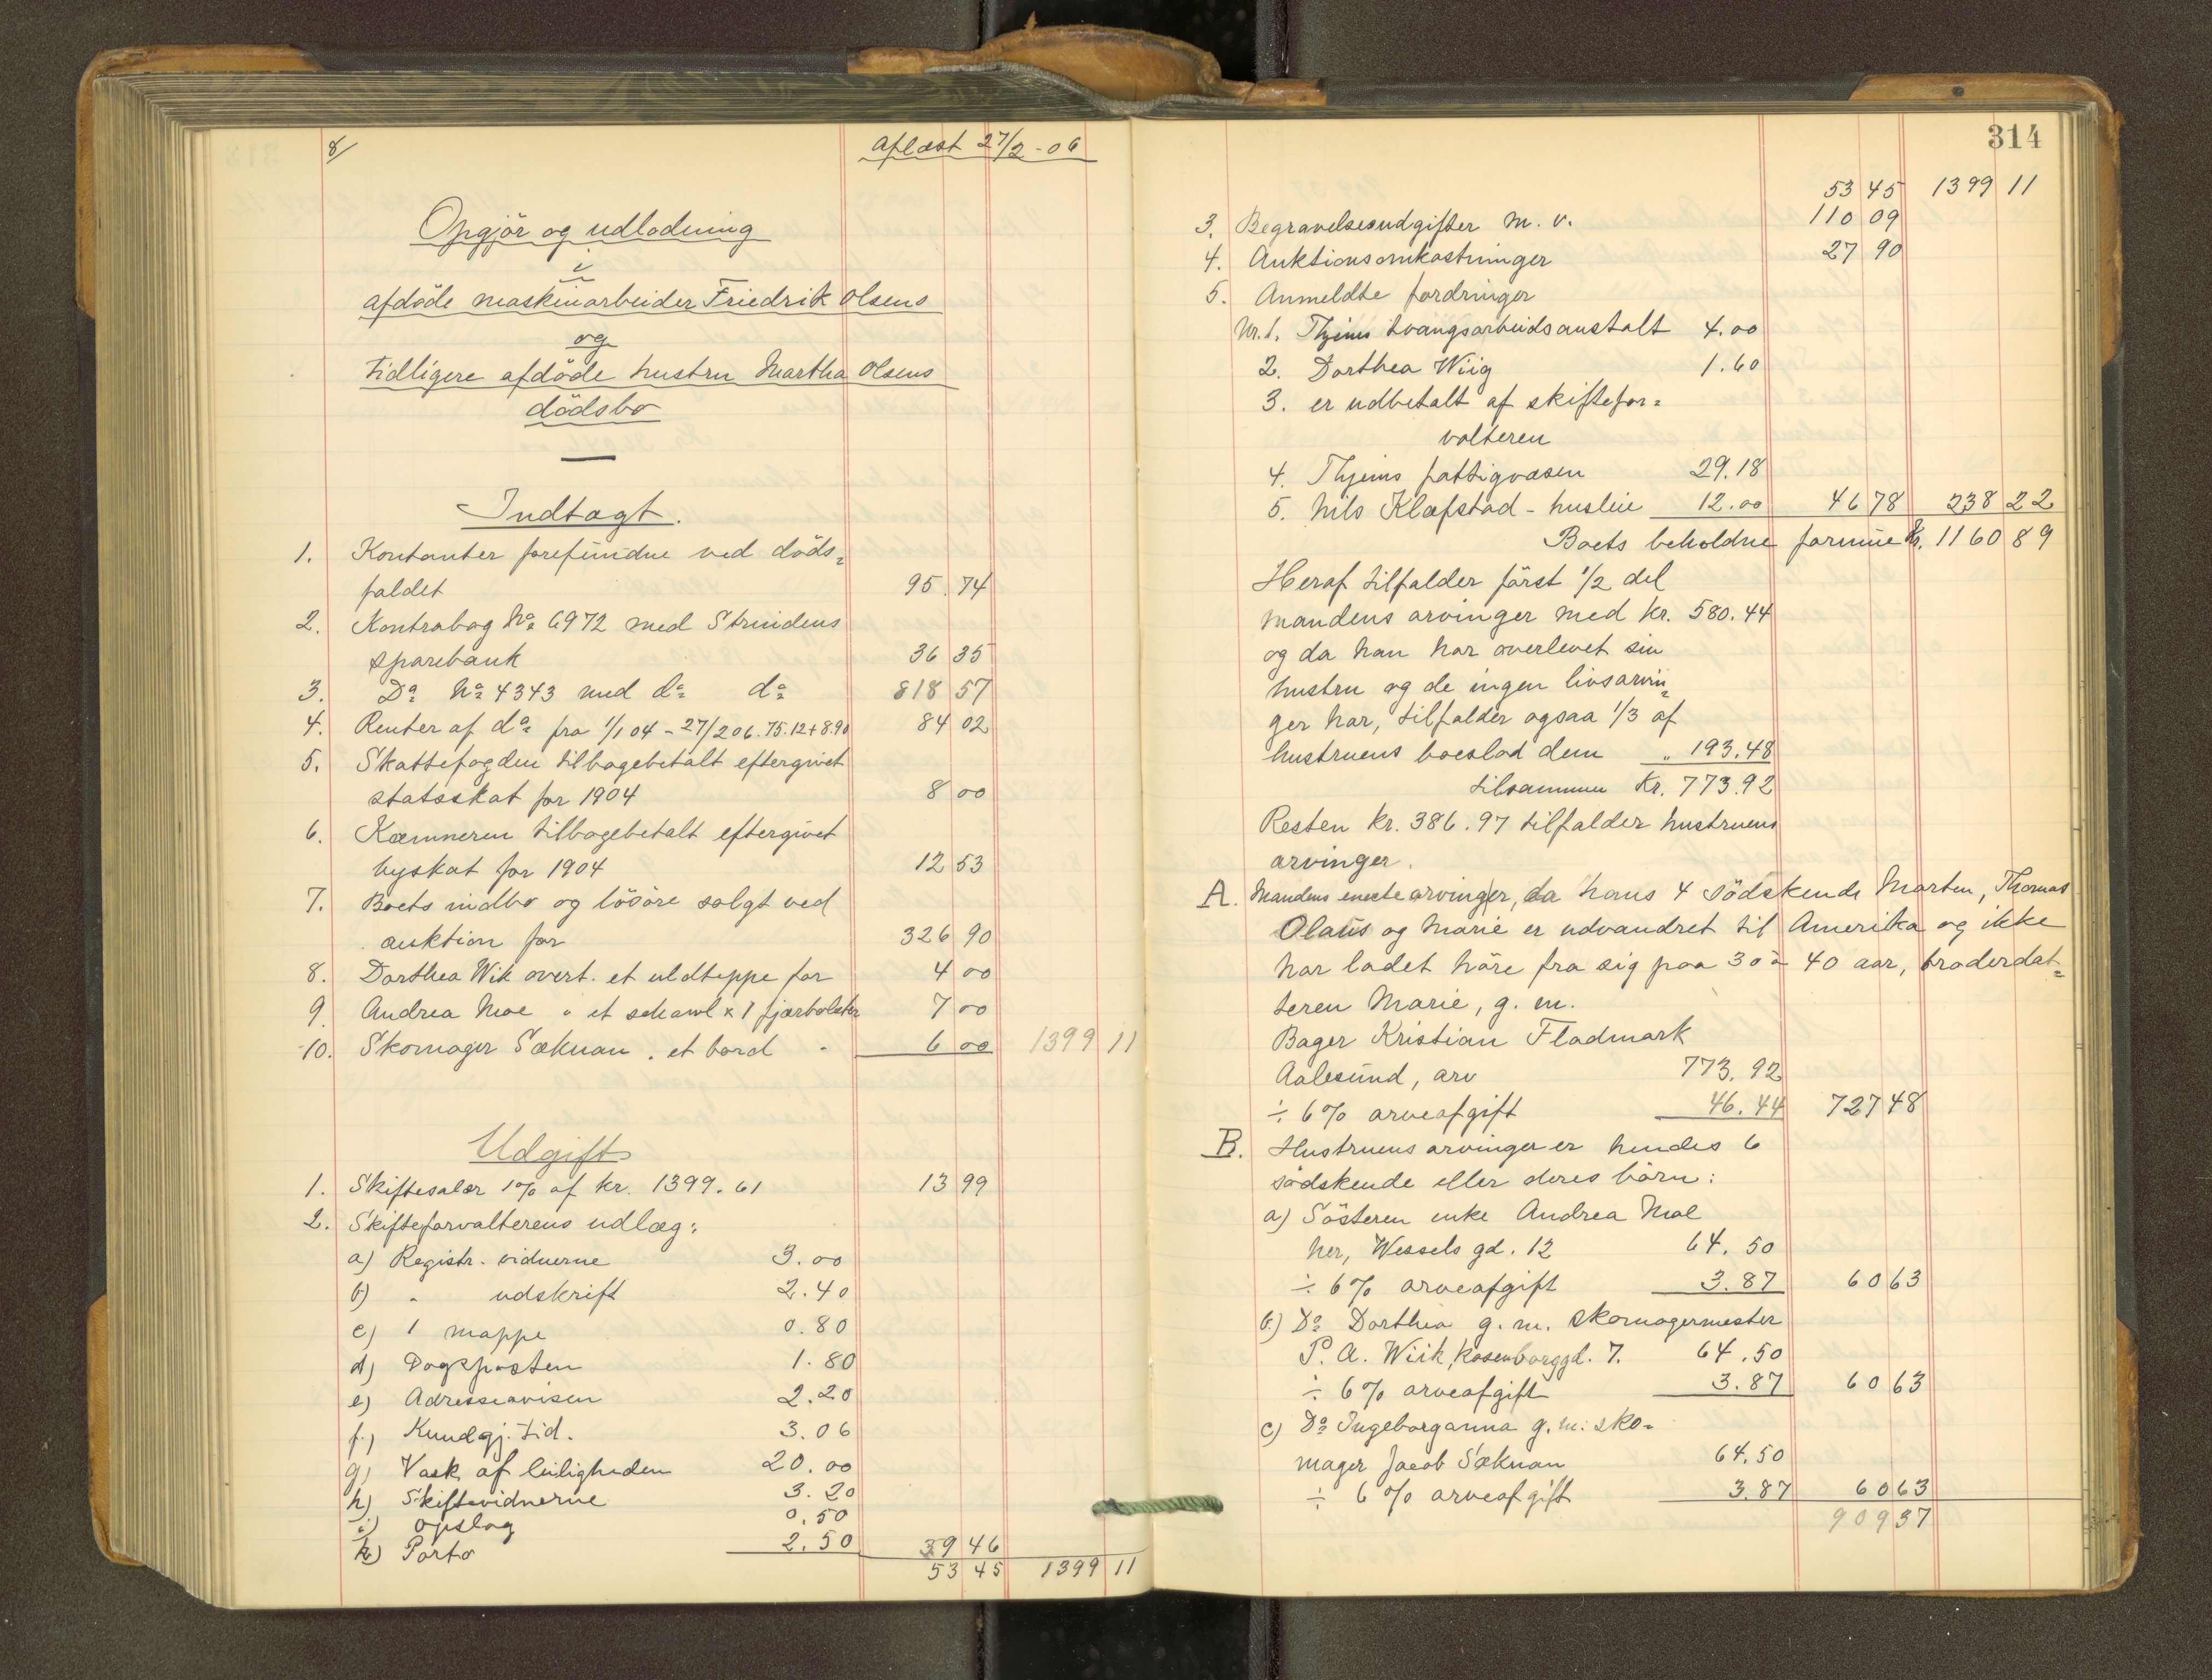 8/
Aflæst 27/2-06
Opgjör og udlodning
i
afdöde maskinarbeider Friedrik Olsens
og
tidligere afdöde hustru Martha Olsens
dödsbo
Indtægt.
1. Kontanter forefundne ved döds=
faldet 95.74
2. Kontrabog No 6972 med Strindens
sparebank 36 35
3. Do No 4343 med do do 818 57
4. Renter af do fra 1/1 04 - 27/2 06. 75.12+8.90 84 02
5. Skattefogden tilbagebetalt eftergivet
statsskat for 1904 8 00
6. Kæmneren tilbagebetalt eftergivet
byskat for 1904 12 53
7. Boets indbo og lösöre solgt ved
auktion for 326 90
8. Dorthea Wik overt. et uldteppe for 4 00
9. Andrea Moe " et schawl x 1 fjærbolster 7 00
10. Skomager Sæknan . et bord " 6 00 1399 11
Udgift
1. Skiftesalær 1% af kr. 1399.61 13 99
2. Skifteforvalterens udlæg:
a) Registr. vidnerne 3.00
b) " udskrift 2.40
c) 1 mappe 0.80
d) Dagsposten 1.80
e) Adresseavisen 2.20
f) Kundgj. tid. 3.06
g) Vask af leiligheden 20.00
h) Skiftevidnerne 3.20
i) opslag 0.50
k) Porto 2.50 39 46
53 45 1399 11
314
53 45 1399 11
3. Begravelsesudgifter m. v. 110 09
4. Auktionsomkostninger 27 90
5. Anmeldte fordringer
Nr. 1. Thjems tvangsarbeidsanstalt 4.00
2. Dorthea Wiig 1.60
3. er udbetalt af skiftefor=
valteren
4. Thjems fattigvæsen 29.18
5. Nils Klæfstad - husleie 12.00 46 78 238 22
Boets beholdne formue Kr. 1160 89
Heraf tilfalder först 1/2 del
mandens arvinger med kr. 580.44
og da han har overlevet sin
hustru og de ingen livsarvin=
ger har, tilfalder ogsaa 1/3 af
hustruens boeslod dem " 193.48
tilsammen Kr. 773.92
Resten kr. 386.97 tilfalder hustruens
arvinger.
A. Mandens eneste arvinger, da hans 4 södskende Morten, Thomas
Olaus og Marie er udvandret til Amerika og ikke
har ladet höre fra sig paa 30 à 40 aar, broderdat=
teren Marie, g. m.
Bager Kristian Fladmark
Aalesund, arv 773.92
÷ 6% arveafgift 46.44 727 48
B. Hustruens arvinger er hendes 6
södskende eller deres börn:
a) Sösteren enke Andrea Moe
her, Wessels gd. 12 64.50
÷ 6% arveafgift 3.87 60 63
b.) Do Dorthea g. m. skomagermester
P. A. Wiik, Rosenborggd. 7. 64.50
÷ 6% arveafgift 3.87 60 63
c) Do Ingeborganna g. m. sko-
mager Jacob Sæknan 64.50
÷ 6% arveafgift 3.87 60 63
909 37